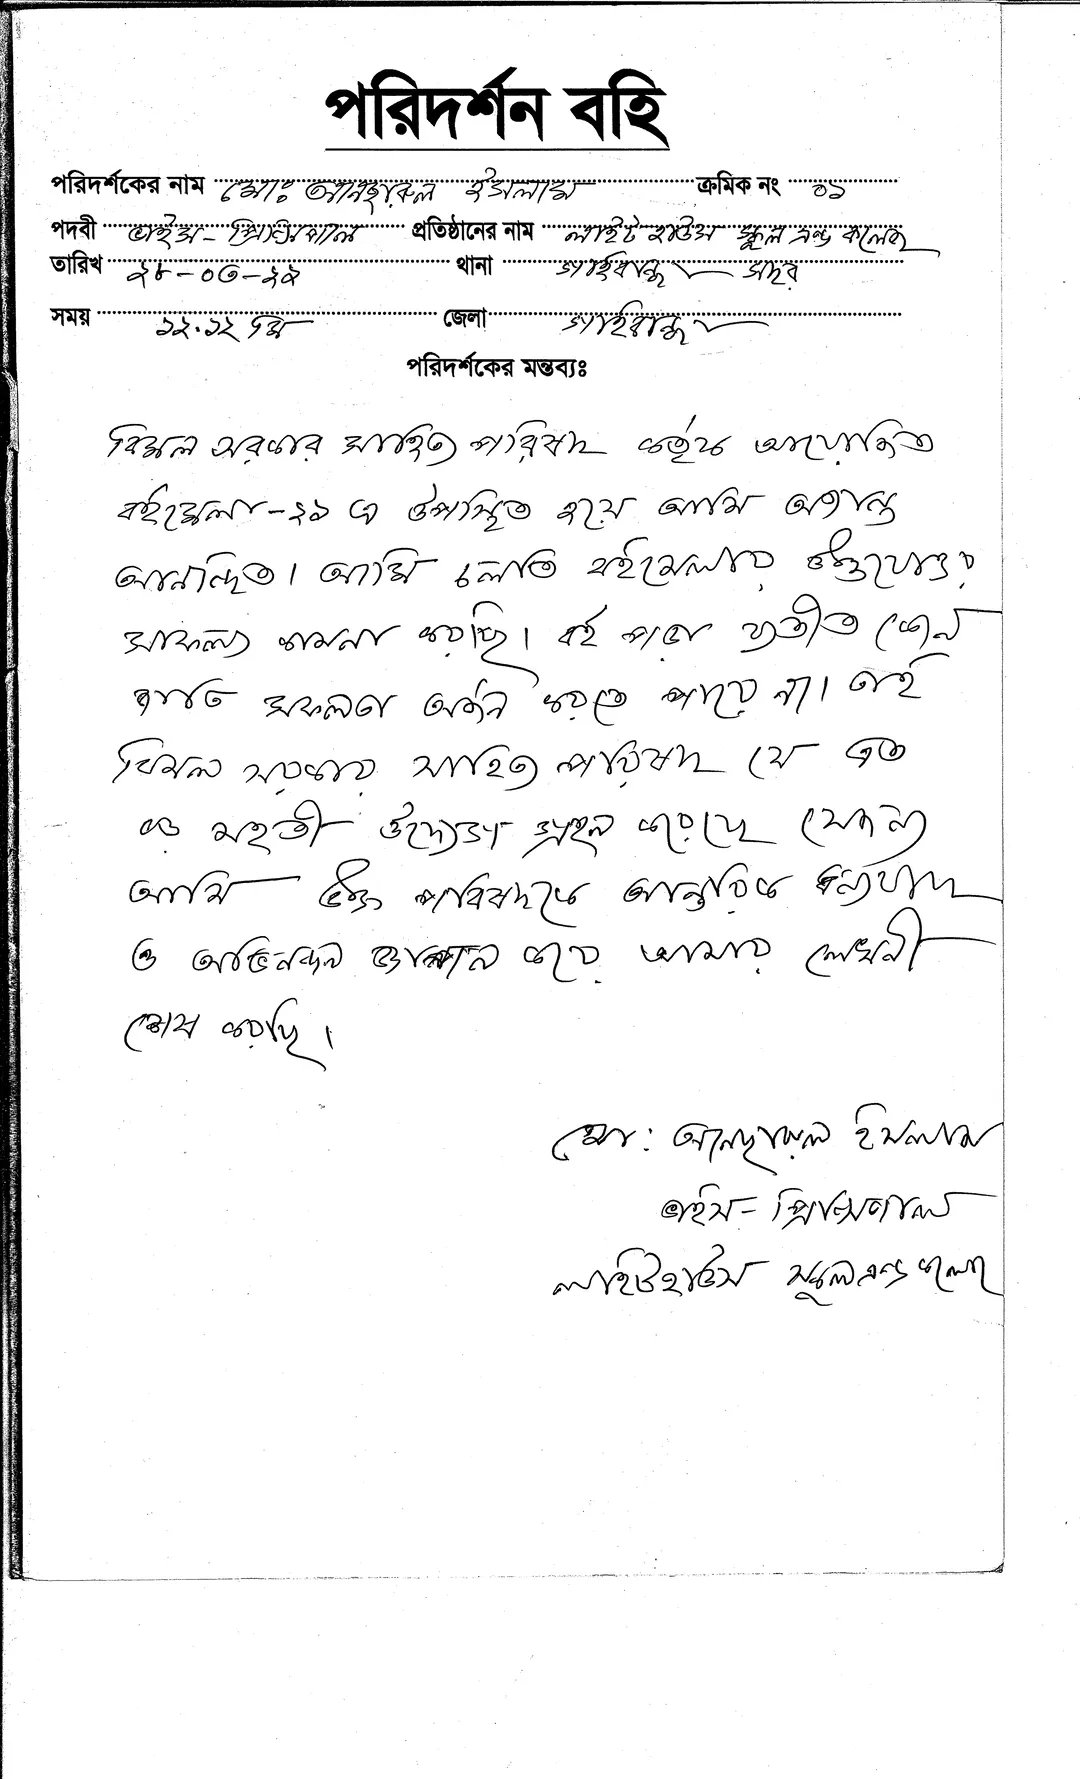 পরিদর্শন বহি
পরিদর্শকের নাম মোঃ আনছারুল ইসলাম ক্রমিক নং ০১
পদবী ভাইস-প্রিন্সিপাল প্রতিষ্ঠানের নাম লাইট হাউস স্কুল এন্ড কলেজ
তারিখ ২৮-০৩-২১ থানা গাইবান্ধা সদর
সময় ১২.১২ মি জেলা গাইবান্ধা
পরিদর্শকের মন্তব্যঃ
বিমল সরকার সাহিত্য পরিষদ কর্তৃক আয়োজিত
বইমেলা-২১ এ উপস্থিত হয়ে আমি অত্যন্ত
আনন্দিত। আমি চলতি বইমেলার উত্তরোত্তর
সাফল্য কামনা করছি। বই পড়া ব্যতীত কোন
জাতি সফলতা অর্জন করতে পারে না। তাই
বিমল সরকার সাহিত্য পরিষদ যে এত
বড় মহতী উদ্যোগ গ্রহন করেছে সেজন্য
আমি উক্ত পরিষদকে আন্তরিক ধন্যবাদ
ও অভিনন্দন জ্ঞাপন করে আমার লেখনী
শেষ করছি।
মো: আনছারুল ইসলাম
ভাইস-প্রিন্সিপাল
লাইটহাউস স্কুল এন্ড কলেজ